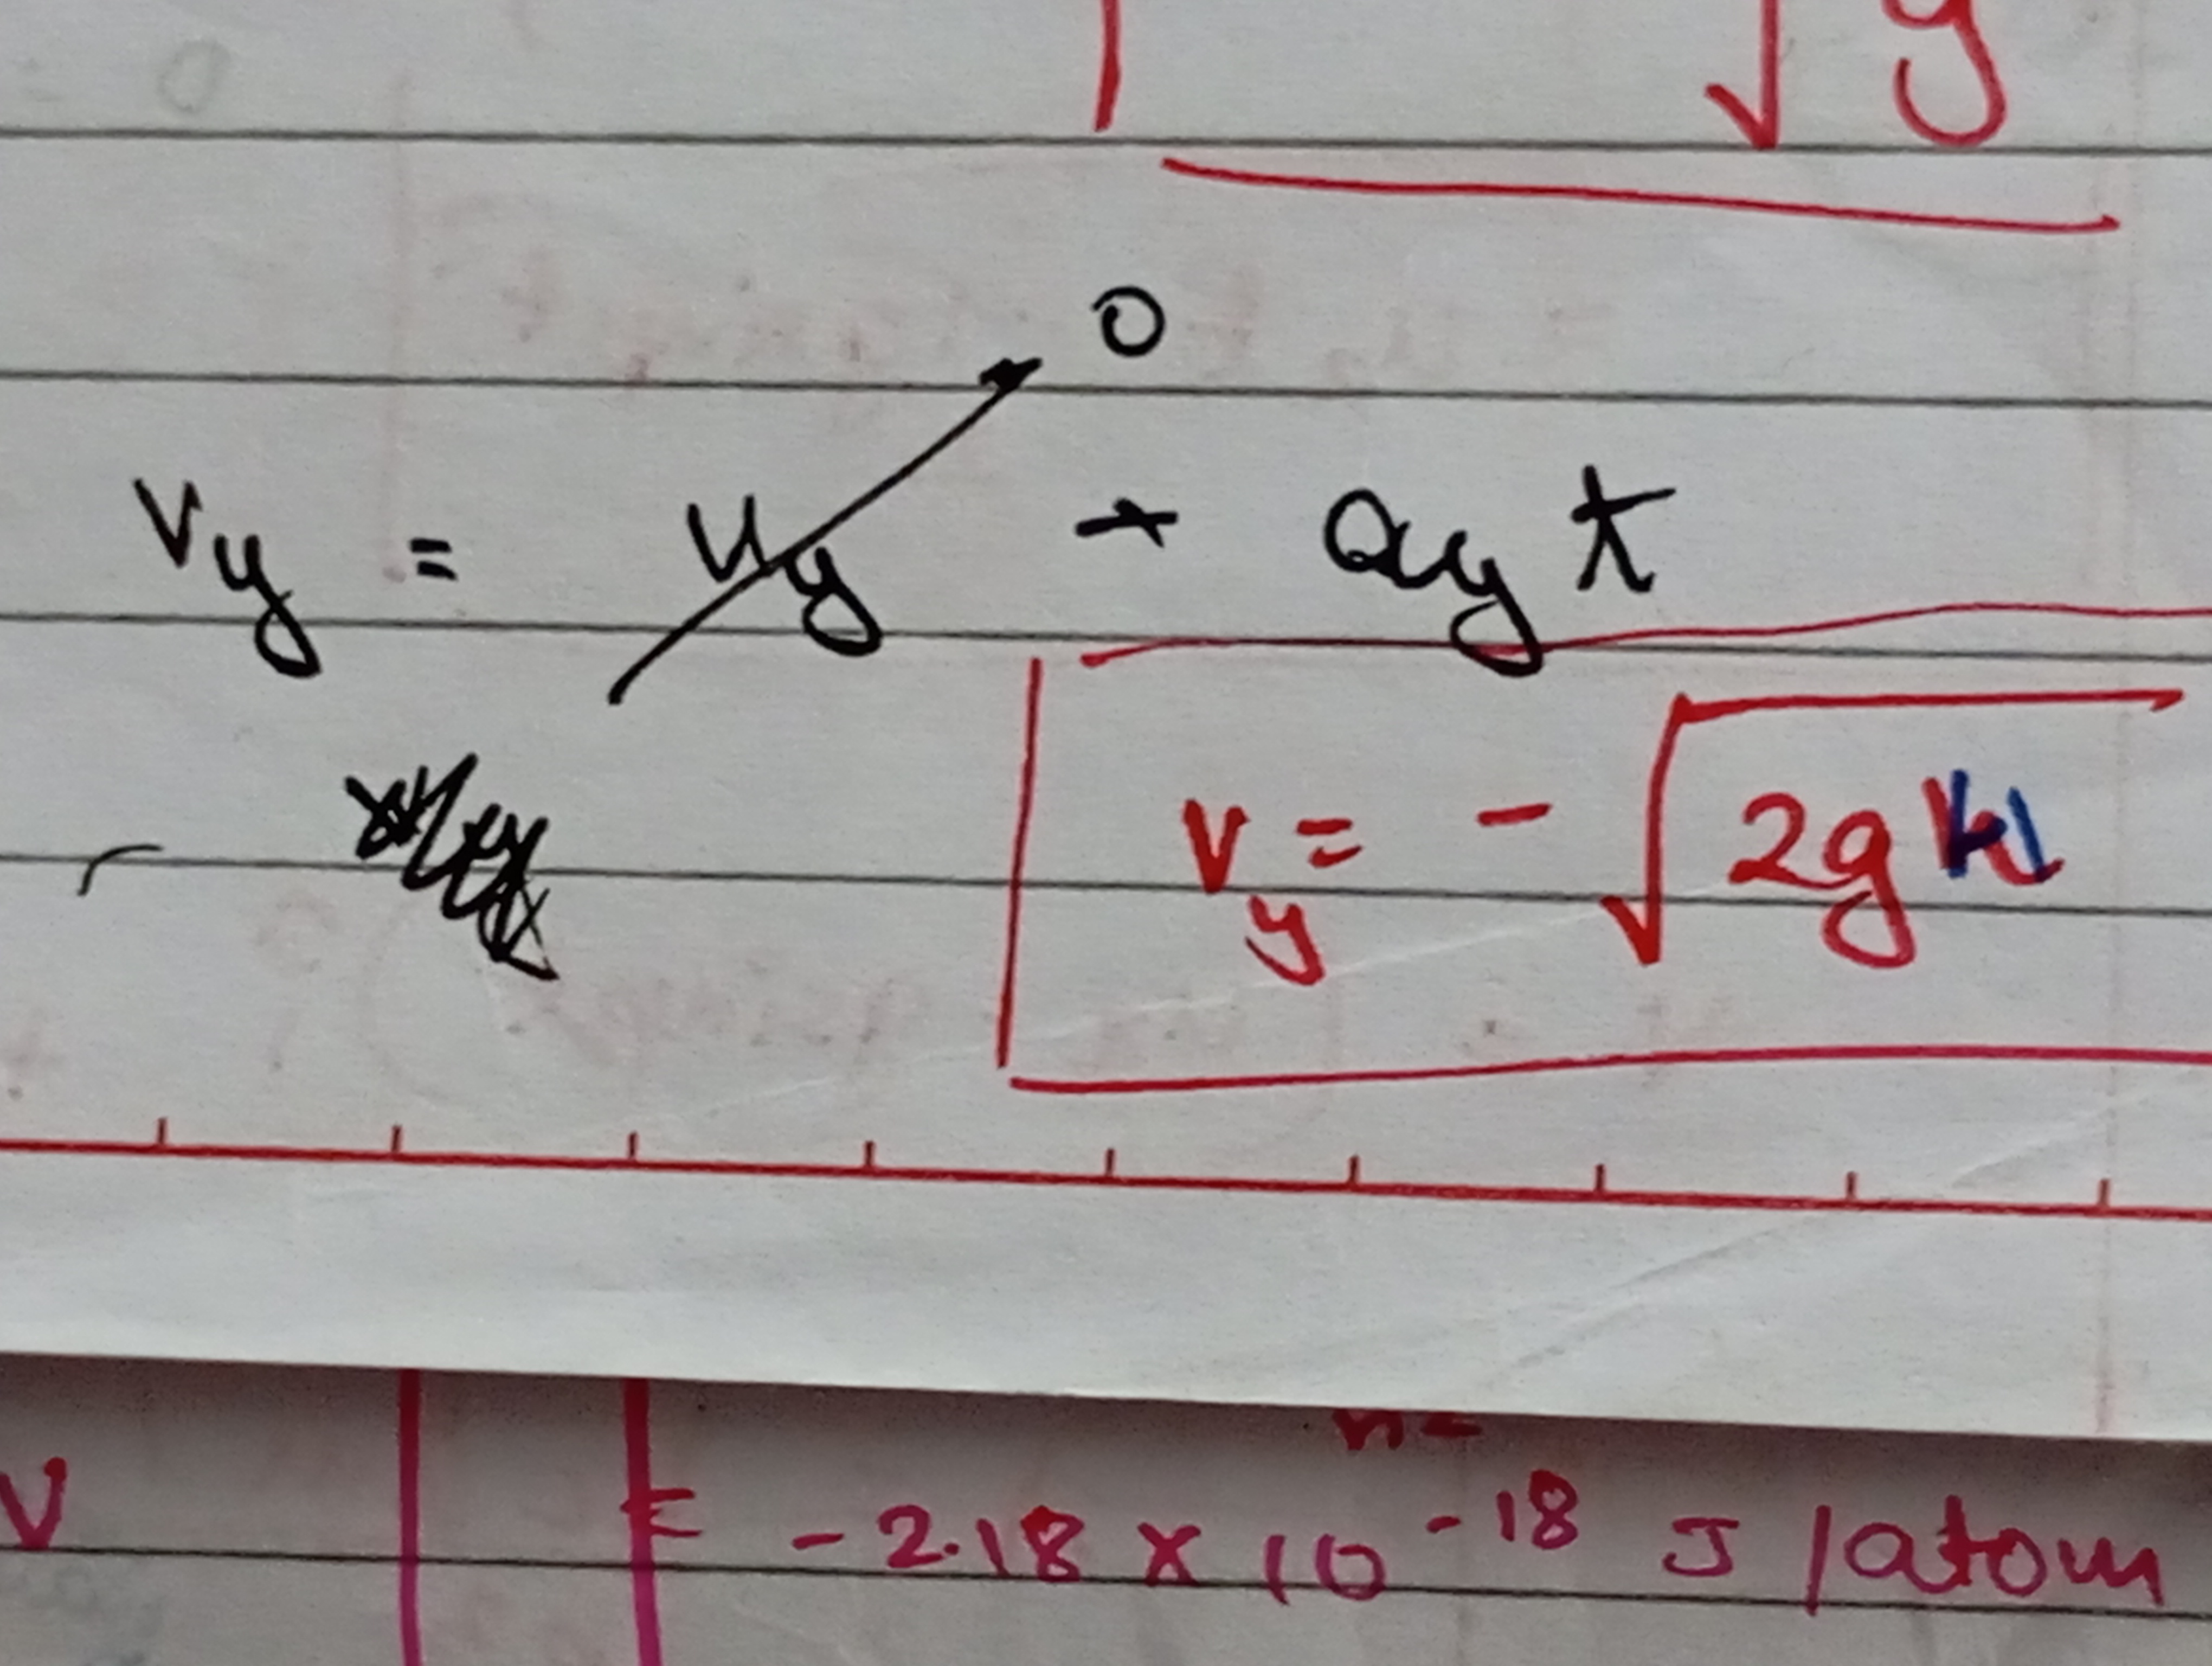 √g
0
Vy = uy + ay t
Vy = - √2gH
n=
V
E -2.18 x 10^-18 J/atom